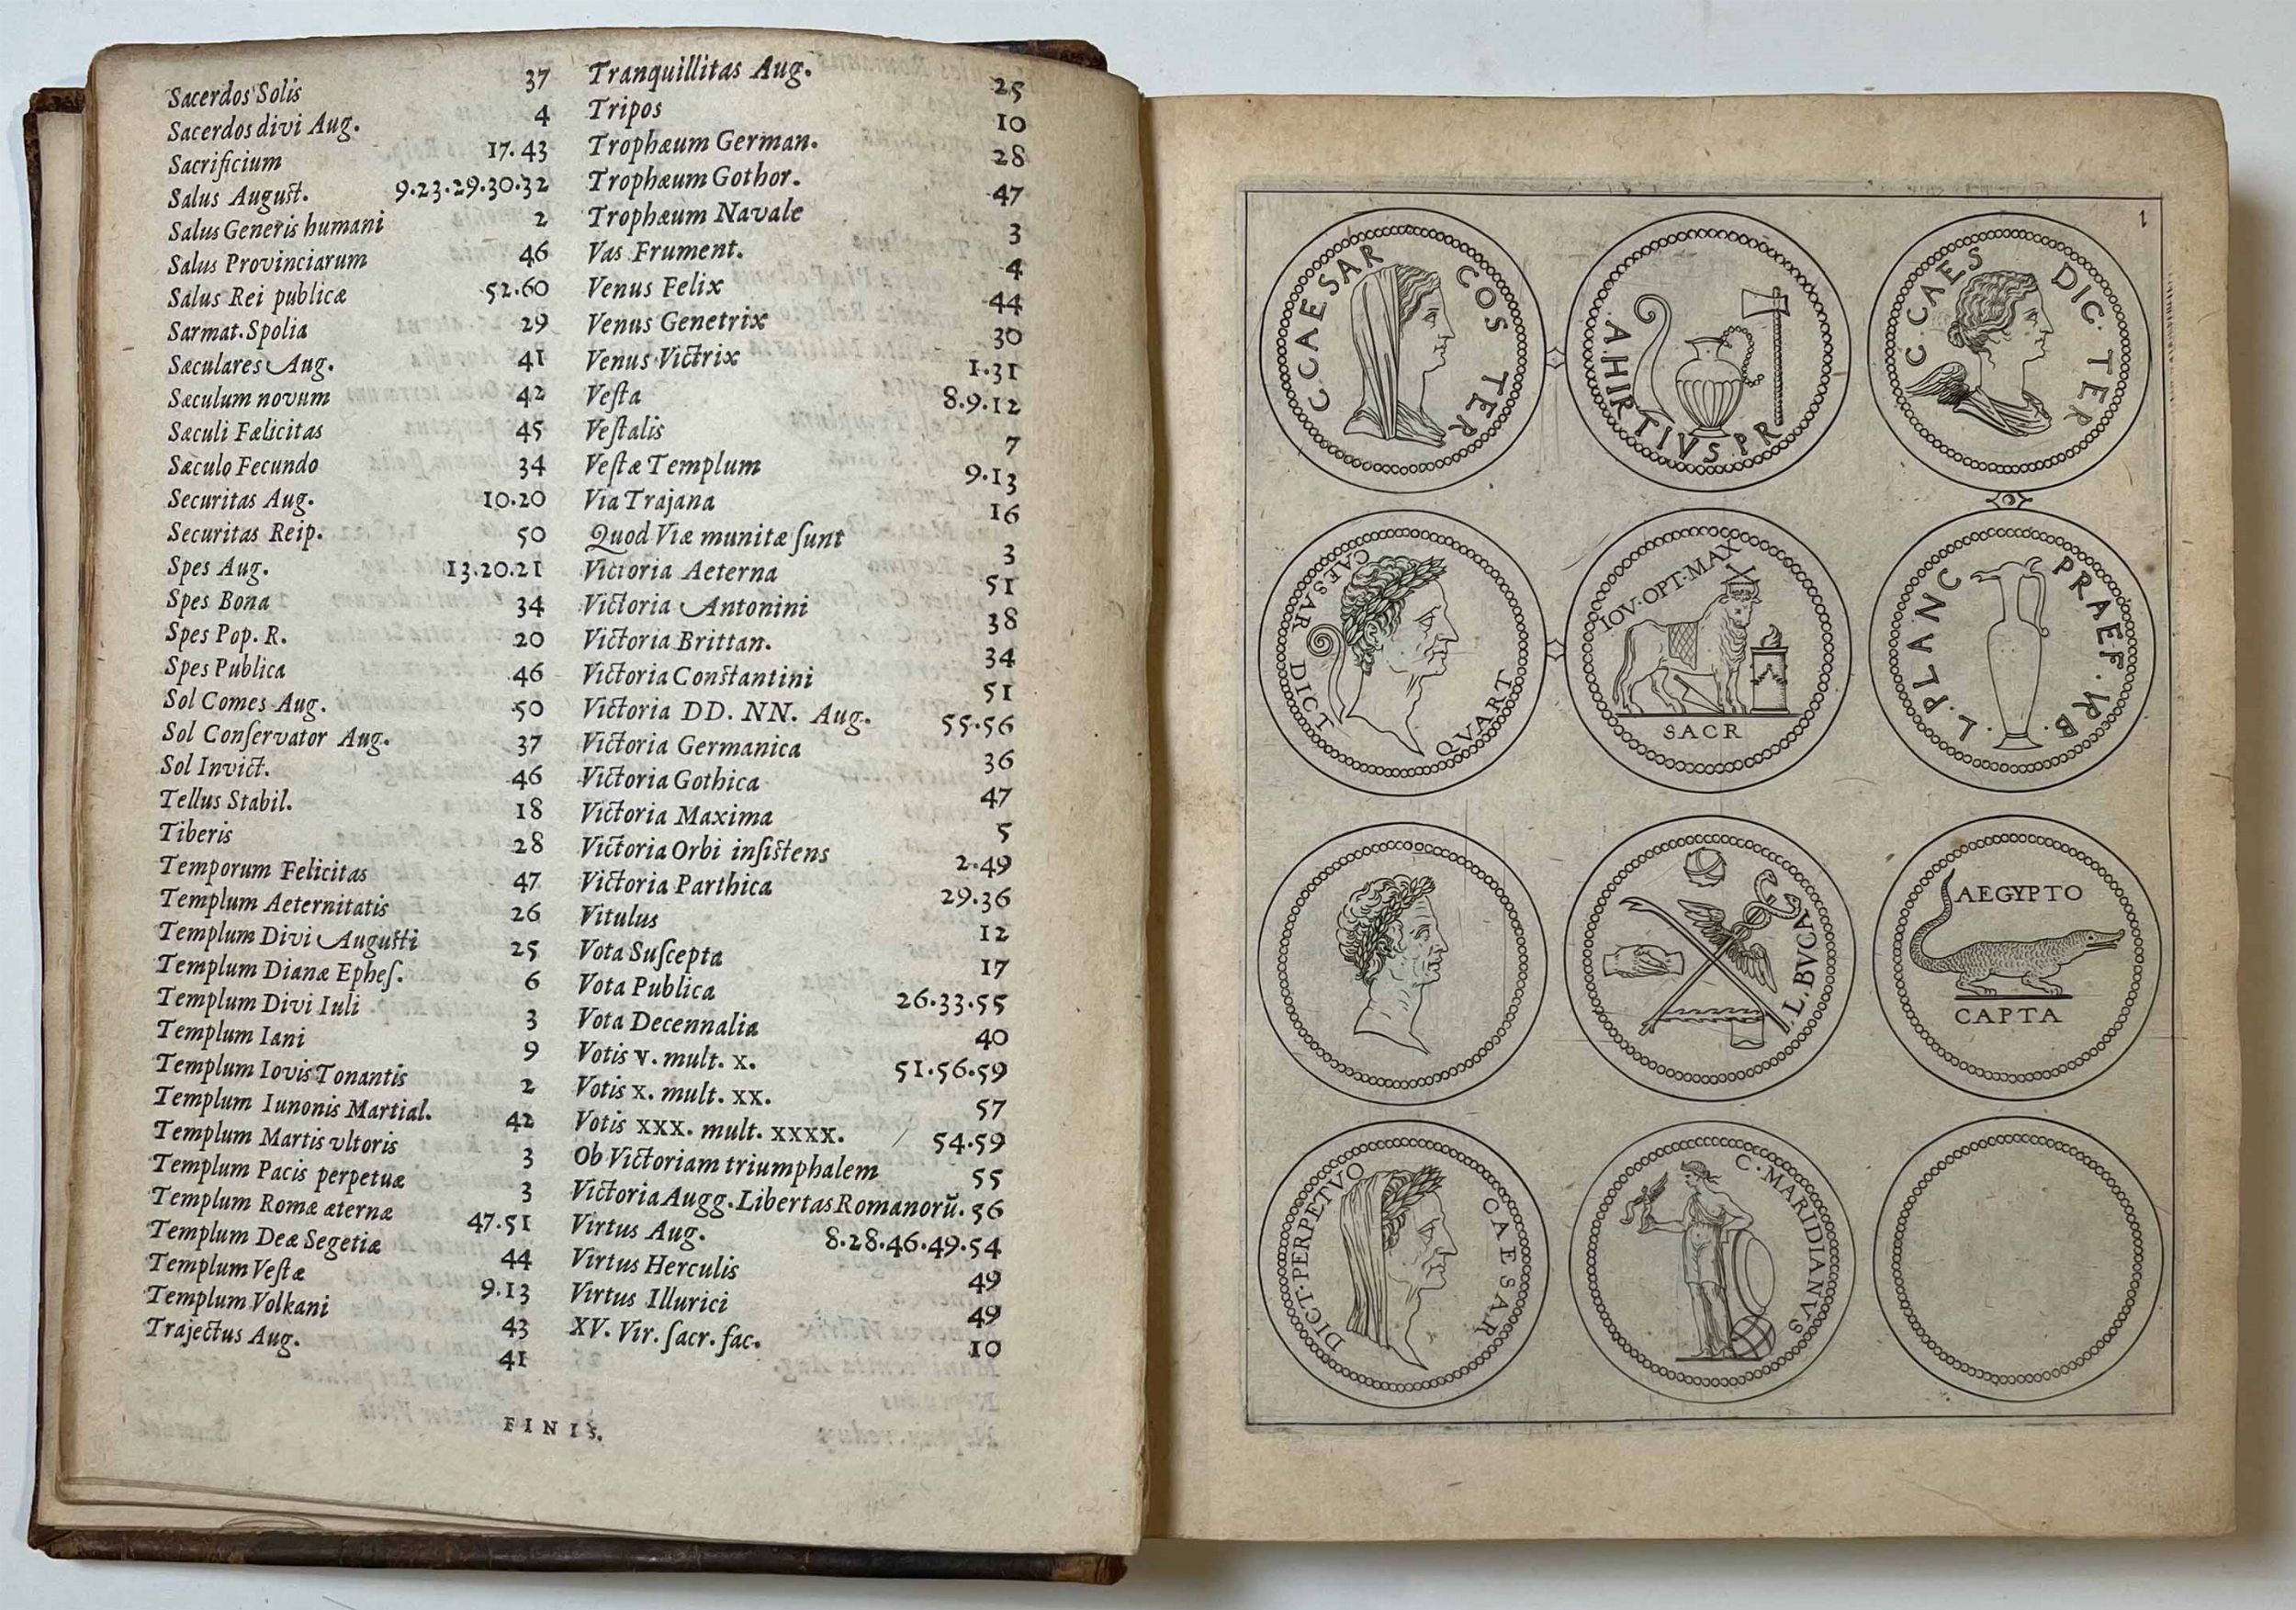 Sacerdos Solis 37
Sacerdos divi Aug. 4
Sacrificium 17.43
Salus August. 9.23.29.30.32
Salus Generis humani 2
Salus Provinciarum 46
Salus Rei publicæ 52.60
Sarmat. Spolia 29
Sæculares Aug. 41
Sæculum novum 42
Sæculi Fælicitas 45
Sæculo Fecundo 34
Securitas Aug. 10.20
Securitas Reip. 50
Spes Aug. 13.20.21
Spes Bona 34
Spes Pop. R. 20
Spes Publica 46
Sol Comes Aug. 50
Sol Conſervator Aug. 37
Sol Invict. 46
Tellus Stabil. 18
Tiberis 28
Temporum Felicitas 47
Templum Aeternitatis 26
Templum Divi Augusti 25
Templum Dianæ Epheſ. 6
Templum Divi Iuli 3
Templum Iani 9
Templum Iovis Tonantis 2
Templum Iunonis Martial. 42
Templum Martis vltoris 3
Templum Pacis perpetuæ 3
Templum Romæ æternæ 47.51
Templum Deæ Segetiæ 44
Templum Veſtæ 9.13
Templum Volkani 43
Trajectus Aug. 41
Tranquillitas Aug. 25
Tripos 10
Trophæum German. 28
Trophæum Gothor. 47
Trophæum Navale 3
Vas Frument. 4
Venus Felix 44
Venus Genetrix 30
Venus Victrix 1.31
Veſta 8.9.12
Veſtalis 7
Veſtæ Templum 9.13
Via Trajana 16
Quod Viæ munitæ ſunt 3
Victoria Aeterna 51
Victoria Antonini 38
Victoria Brittan. 34
Victoria Constantini 51
Victoria DD. NN. Aug. 55.56
Victoria Germanica 36
Victoria Gothica 47
Victoria Maxima 5
Victoria Orbi inſistens 2.49
Victoria Parthica 29.36
Vitulus 12
Vota Suſcepta 17
Vota Publica 26.33.55
Vota Decennalia 40
Votis v. mult. x. 51.56.59
Votis x. mult. xx. 57
Votis xxx. mult. xxxx. 54.59
Ob Victoriam triumphalem 55
Victoria Augg. Libertas Romanorũ. 56
Virtus Aug. 8.28.46.49.54
Virtus Herculis 49
Virtus Illurici 49
XV. Vir. ſacr. fac. 10
FINIS.
1
C. CAESAR COS TER
A. HIRTIVS. PR
C. CAES DIC. TER
CAESAR DICT QVART
IOV. OPT. MAX
SACR
L. PLANC PRAEF. VRB.
L. BVCA
AEGYPTO
CAPTA
DICT. PERPETVO CAESAR
C. MARIDIANVS